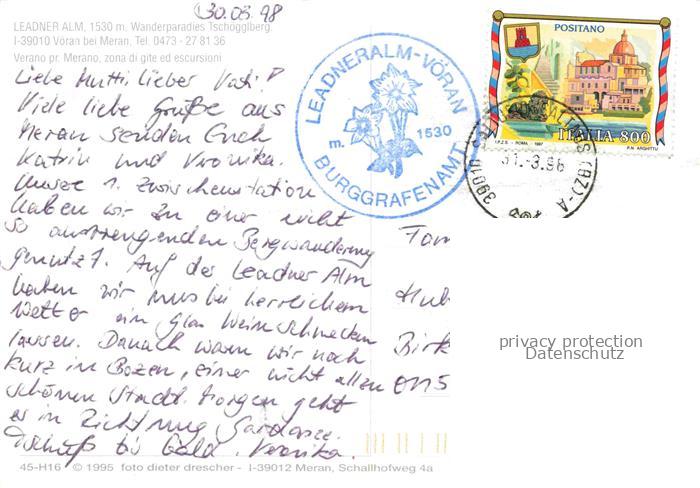 30.03.98
LEADNER ALM, 1530 m. Wanderparadies Tschögglberg
I-39010 Vöran bei Meran, Tel. 0473 - 27 81 36
Verano pr. Merano, zona di gite ed escursioni
Liebe Mutti, lieber Vati!
Viele liebe Grüße aus
Meran senden Euch
Katrin und Veronika.
Unsere 1. Zwischenstation
haben wir zu einer nicht
so anstrengenden Bergwanderung
genutzt. Auf der Leadner Alm
haben wir uns bei herrlichem
Wetter ein Glas Wein schmecken
lassen. Danach waren wir noch
kurz in Bozen, einer nicht allzu
schönen Stadt. Morgen geht
es in Richtung Gardasee.
Tschüß bis bald. Veronika.
45-H16 © 1995 foto dieter drescher - I-39012 Meran, Schallhofweg 4a
LEADNERALM-VÖRAN
m. 1530
BURGGRAFENAMT
POSITANO
ITALIA 800
I.P.Z.S. - ROMA - 1997
39010
(BZ)-A
Fam
Hub
Birk
privacy protection
Datenschutz